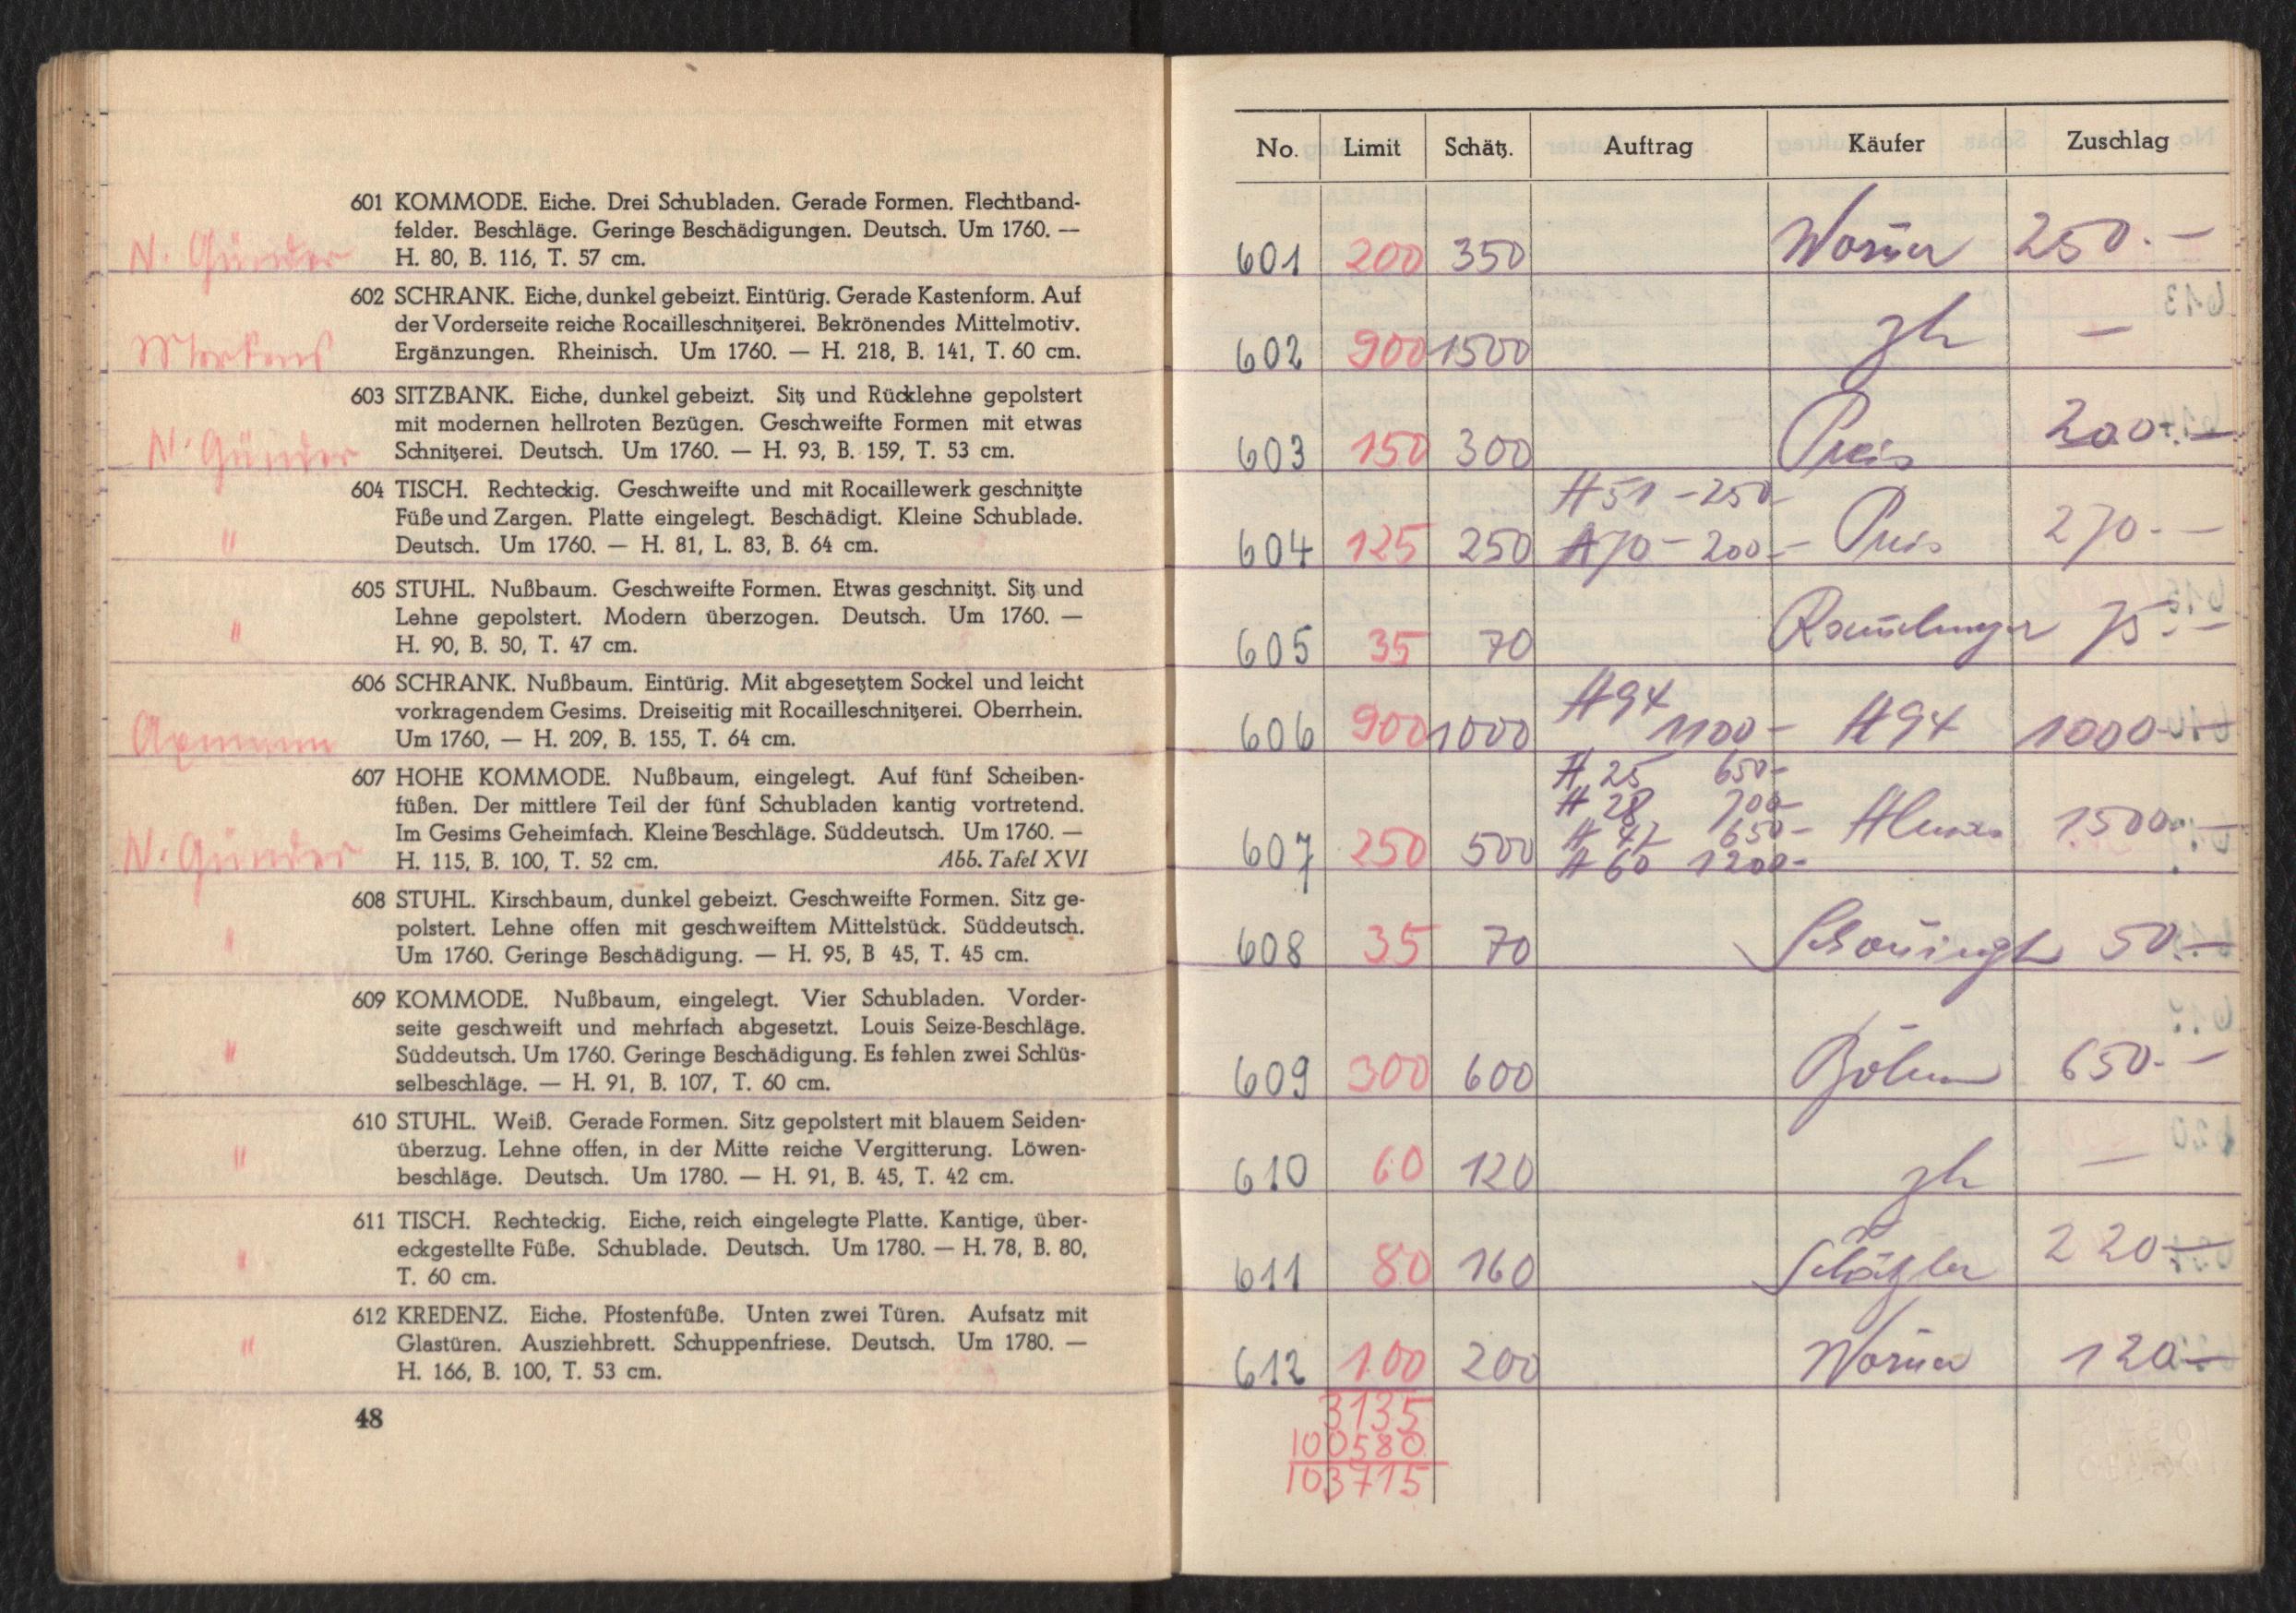 601 KOMMODE. Eiche. Drei Schubladen. Gerade Formen. Flechtband-
felder. Beschläge. Geringe Beschädigungen. Deutsch. Um 1760. —
N. Günder H. 80, B. 116, T. 57 cm.
602 SCHRANK. Eiche, dunkel gebeizt. Eintürig. Gerade Kastenform. Auf
der Vorderseite reiche Rocailleschnitzerei. Bekrönendes Mittelmotiv.
Ergänzungen. Rheinisch. Um 1760. — H. 218, B. 141, T. 60 cm.
603 SITZBANK. Eiche, dunkel gebeizt. Sitz und Rücklehne gepolstert
mit modernen hellroten Bezügen. Geschweifte Formen mit etwas
N. Günder Schnitzerei. Deutsch. Um 1760. — H. 93, B. 159, T. 53 cm.
604 TISCH. Rechteckig. Geschweifte und mit Rocaillewerk geschnitzte
Füße und Zargen. Platte eingelegt. Beschädigt. Kleine Schublade.
" Deutsch. Um 1760. — H. 81, L. 83, B. 64 cm.
605 STUHL. Nußbaum. Geschweifte Formen. Etwas geschnitzt. Sitz und
Lehne gepolstert. Modern überzogen. Deutsch. Um 1760. —
" H. 90, B. 50, T. 47 cm.
606 SCHRANK. Nußbaum. Eintürig. Mit abgesetztem Sockel und leicht
vorkragendem Gesims. Dreiseitig mit Rocailleschnitzerei. Oberrhein.
Um 1760, — H. 209, B. 155, T. 64 cm.
607 HOHE KOMMODE. Nußbaum, eingelegt. Auf fünf Scheiben-
füßen. Der mittlere Teil der fünf Schubladen kantig vortretend.
Im Gesims Geheimfach. Kleine Beschläge. Süddeutsch. Um 1760. —
N. Günder H. 115, B. 100, T. 52 cm. Abb. Tafel XVI
608 STUHL. Kirschbaum, dunkel gebeizt. Geschweifte Formen. Sitz ge-
polstert. Lehne offen mit geschweiftem Mittelstück. Süddeutsch.
" Um 1760. Geringe Beschädigung. — H. 95, B 45, T. 45 cm.
609 KOMMODE. Nußbaum, eingelegt. Vier Schubladen. Vorder-
seite geschweift und mehrfach abgesetzt. Louis Seize-Beschläge.
" Süddeutsch. Um 1760. Geringe Beschädigung. Es fehlen zwei Schlüs-
selbeschläge. — H. 91, B. 107, T. 60 cm.
610 STUHL. Weiß. Gerade Formen. Sitz gepolstert mit blauem Seiden-
" überzug. Lehne offen, in der Mitte reiche Vergitterung. Löwen-
beschläge. Deutsch. Um 1780. — H. 91, B. 45, T. 42 cm.
611 TISCH. Rechteckig. Eiche, reich eingelegte Platte. Kantige, über-
" eckgestellte Füße. Schublade. Deutsch. Um 1780. — H. 78, B. 80,
T. 60 cm.
612 KREDENZ. Eiche. Pfostenfüße. Unten zwei Türen. Aufsatz mit
" Glastüren. Ausziehbrett. Schuppenfriese. Deutsch. Um 1780. —
H. 166, B. 100, T. 53 cm.
48
No. Limit Schätz. Auftrag Käufer Zuschlag
601 200 350 250.—
602 900 1500 —
603 150 300 200.—
A 51 - 250
604 125 250 A 70 - 200.- 270.—
605 35 70 75.—
A 94
606 900 1000 1100.- A 94 1000.—
A 25 650.-
A 28 700.-
A 47 650.-
607 250 500 A 60 1200.- 1500.—
608 35 70 50.—
609 300 600 Böhm 650.—
610 60 120 —
611 80 160 Schätzler 220.—
612 100 200 120.—
3135
100580
103715